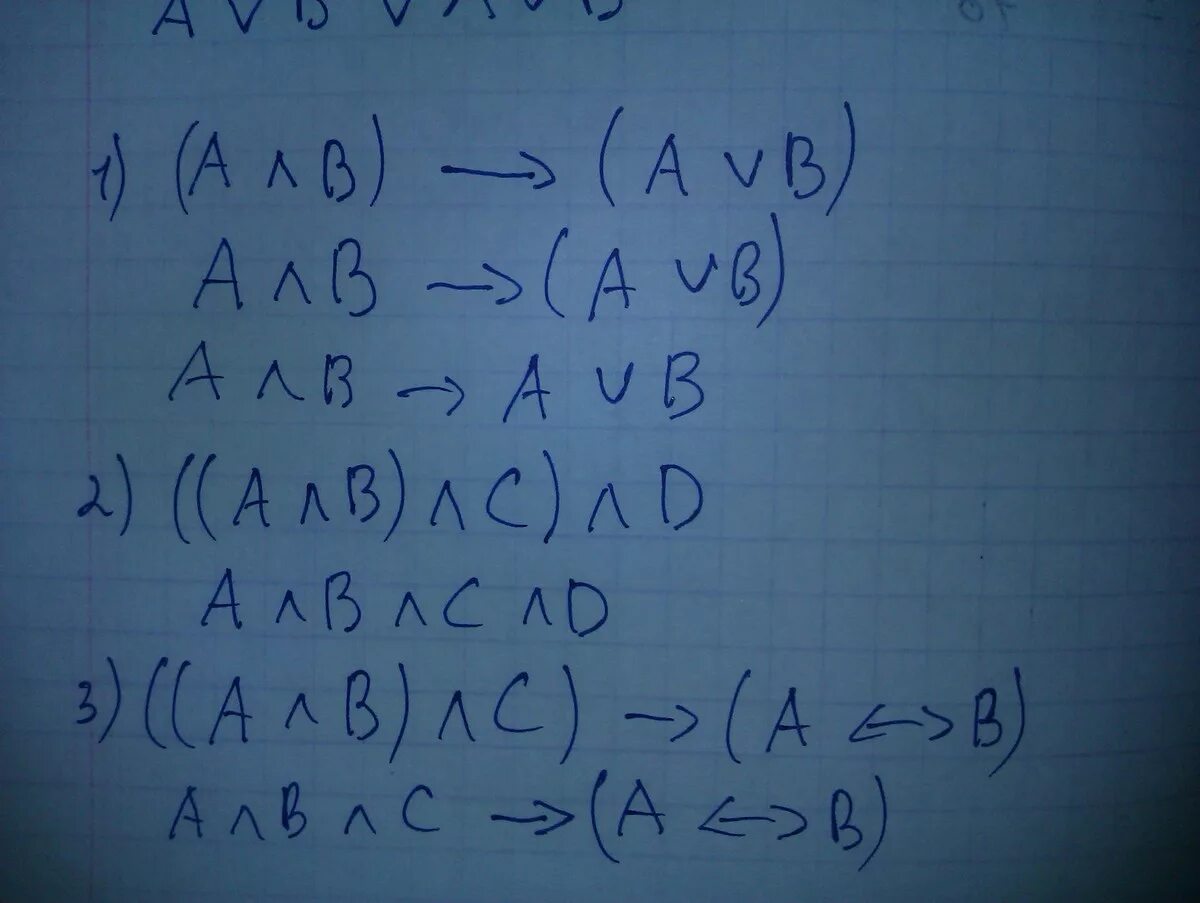 1) (A ∧ B) → (A ∨ B)
A ∧ B → (A ∨ B)
A ∧ B → A ∨ B
2) ((A ∧ B) ∧ C) ∧ D
A ∧ B ∧ C ∧ D
3) ((A ∧ B) ∧ C) → (A ↔ B)
A ∧ B ∧ C → (A ↔ B)